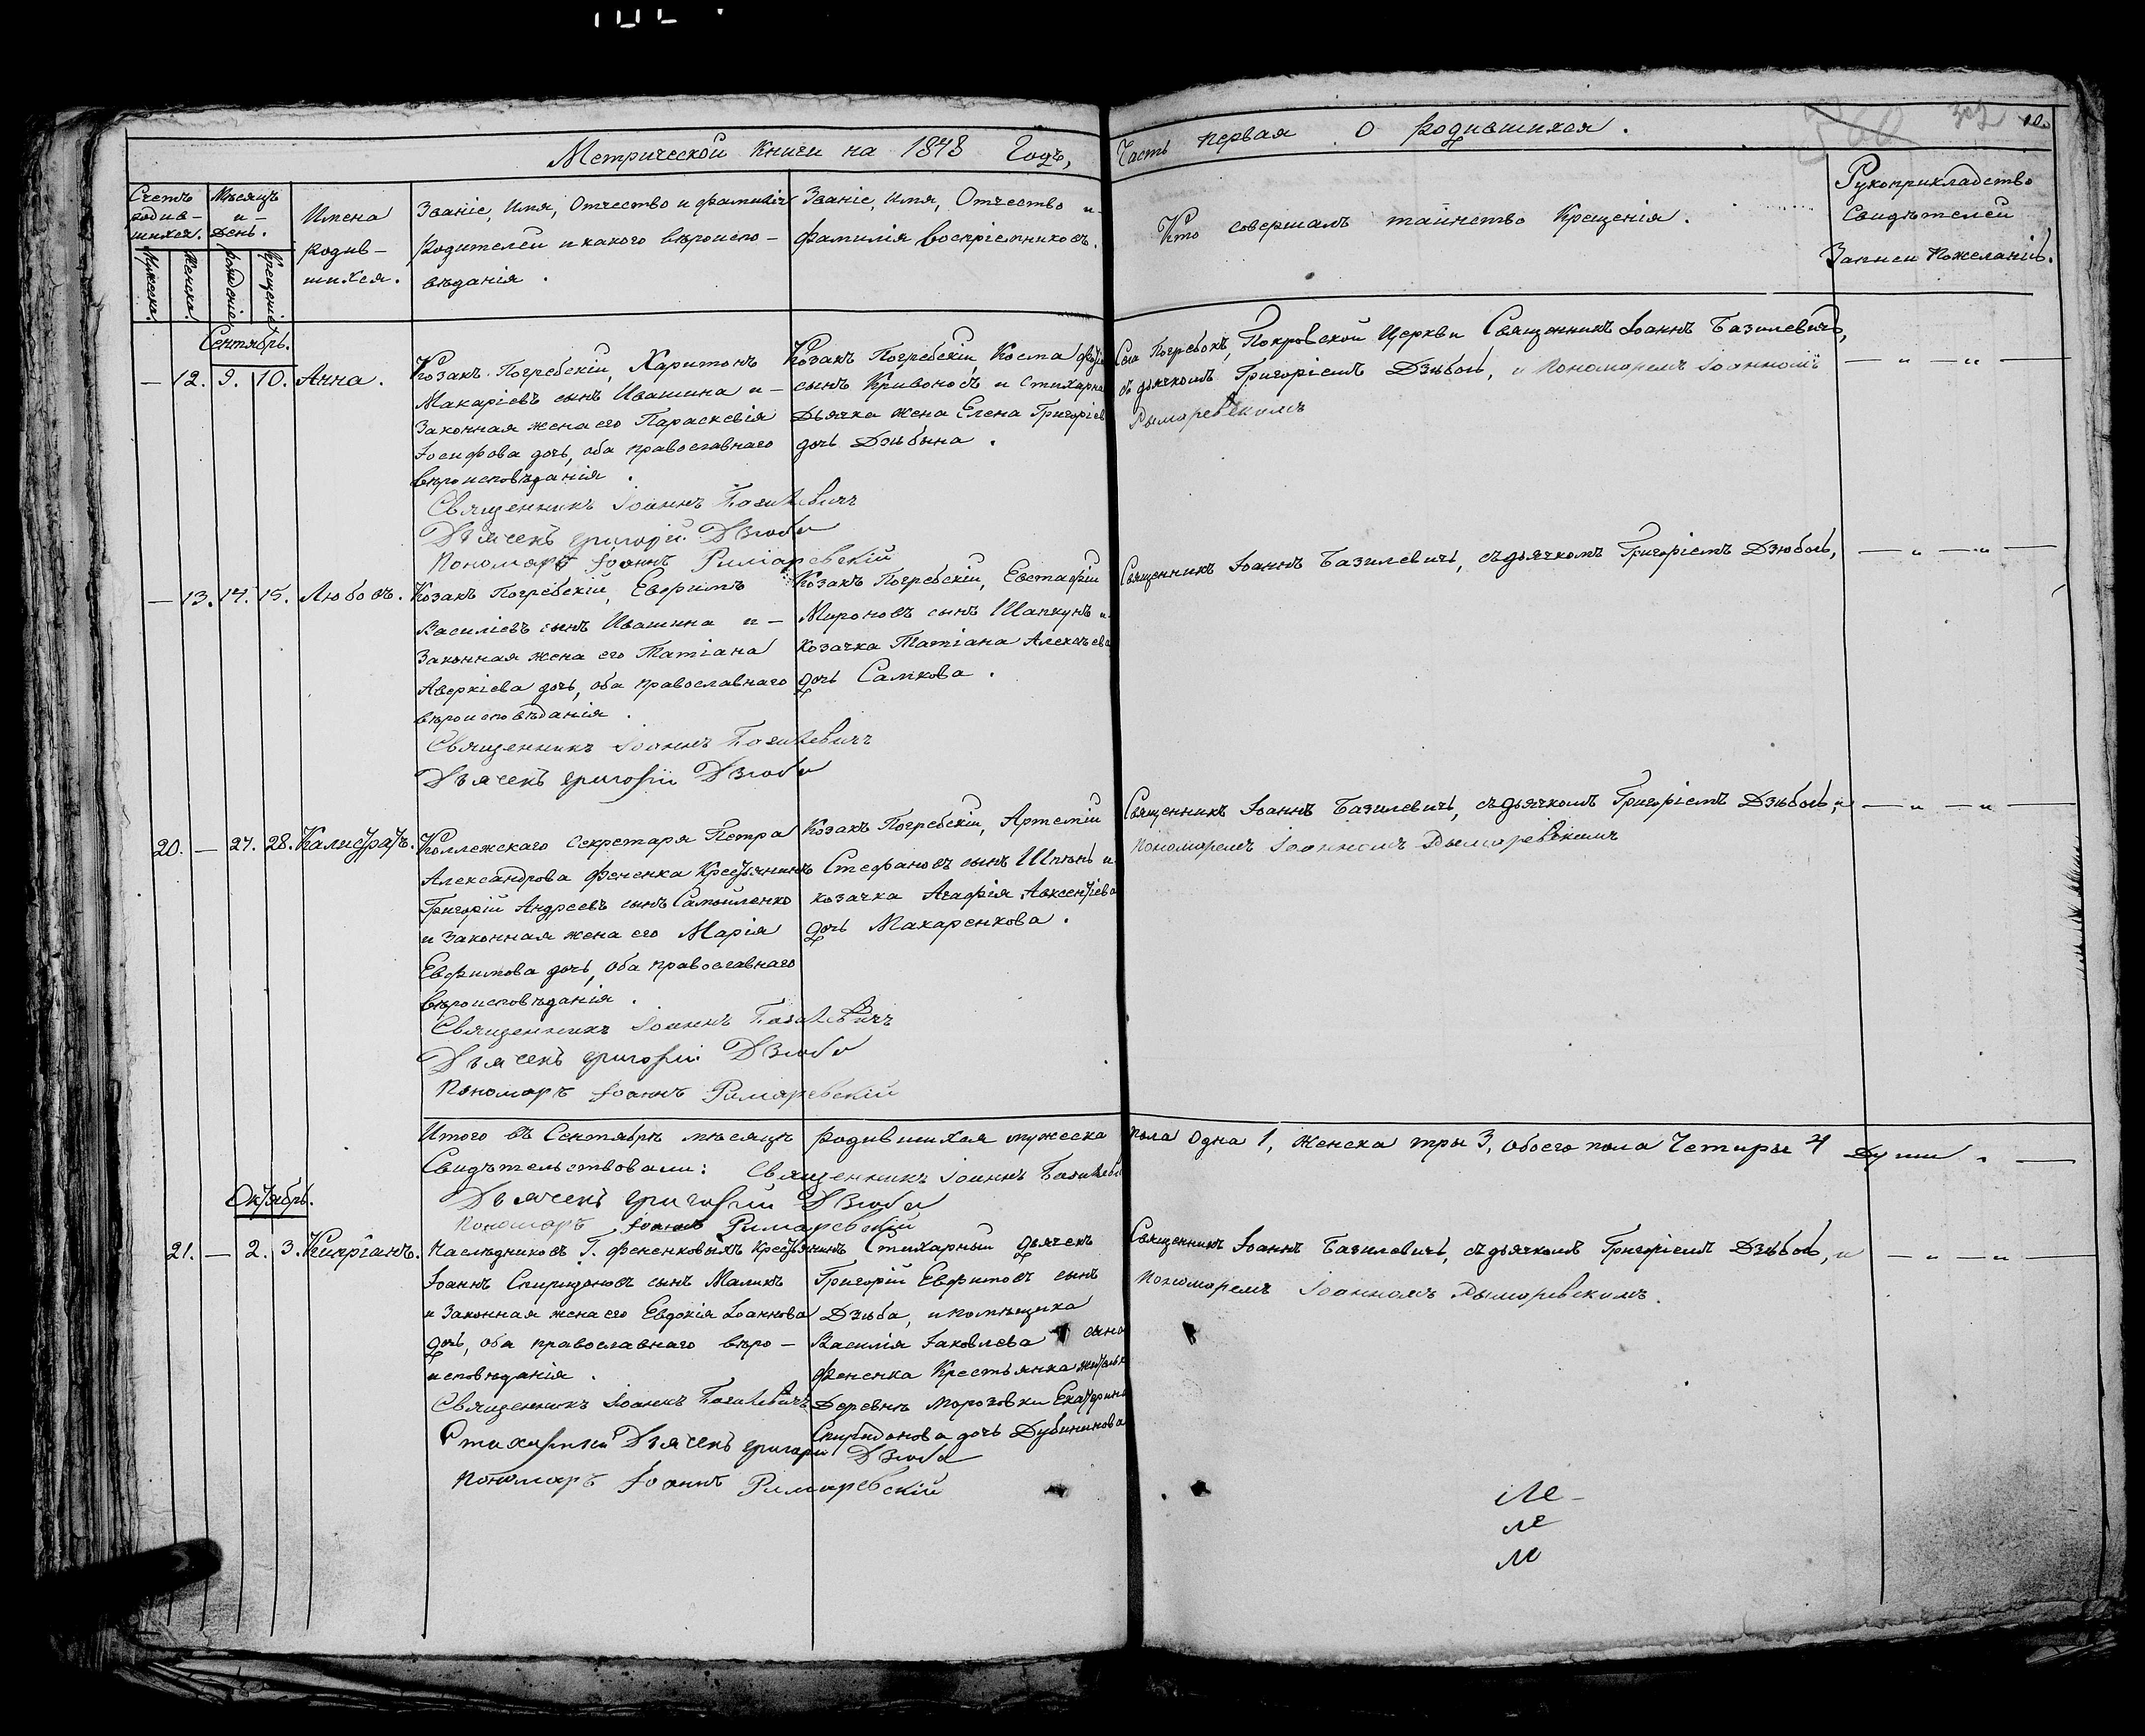 Метрической Книги на 1848 Годъ,
Часть первая О родившихся. 10.
Счетъ родив-шихся.
Мѣсяцъ и День.
Имена родив-шихся.
Званіе, Имя, Отчество и фамилія
родителей и какого вѣроиспо-
вѣданія.
Званіе, Имя, Отчество и
фамилія воспріемниковъ.
Кто совершалъ таинство Крещенія.
Рукоприкладство
Свидѣтелей
Записи Пожеланію.
Мужеска.
Женска.
рожденія
Крещенія
Сентябрь.
— 12. 9. 10. Анна.
Козакъ Погребскій, Харитонъ
Макаріевъ сынъ Ивашина и —
Законная жена его Параскевія
Іосифова дочь, оба православнаго
вѣроисповѣданія.
Козакъ Погребскій, Коста
сынъ Кривоносъ и Стихарна
Дьячка жена Елена Григоріев
дочь Дзюбина.
Села Погребокъ, Покровской Церкви Священникъ Іоаннъ Базилевичь,
съ дьячкомъ Григоріемъ Дзюбою, и Пономаремъ Іоанномъ
Рымаревскимъ
— „ — „ —
Священникъ Іоаннъ Базилевичъ
Дьячекъ Григорій Дзюба
Пономарь Іоаннъ Римаревскій
— 13. 14. 15. Любовь.
Козакъ Погребскій, Евфимъ
Василіевъ сынъ Ивашина и —
Законная жена его Татіана
Аверкіева дочь, оба православнаго
вѣроисповѣданія.
Козакъ Погребскій, Евстафій
Мироновъ сынъ Шапкунъ и
козачка Татіана Алексѣева
дочь Самкова.
Священникъ Іоаннъ Базилевичь, съ дьячкомъ Григоріемъ Дзюбою,
— „ — „ —
Священникъ Іоаннъ Базилевичъ
Дьячекъ Григорій Дзюба
20. — 27. 28. Калистратъ.
Коллежскаго Секретаря Петра
Александрова Фененка Крестьянинъ
Григорій Андреевъ сынъ Самойленко
и Законная жена его Марія
Евфимова дочь, оба православнаго
вѣроисповѣданія.
Козакъ Погребскій, Артемій
Стефановъ сынъ Шпынь и
козачка Агафія Авксентіева
дочь Макаренкова.
Священникъ Іоаннъ Базилевичь, съ дьячкомъ Григоріемъ Дзюбою, и
Пономаремъ Іоанномъ Рымаревскимъ
— „ — „ —
Священникъ Іоаннъ Базилевичъ
Дьячекъ Григорій Дзюба
Пономарь Іоаннъ Римаревскій
Итого въ Сентябрѣ мѣсяцѣ родившихся мужеска пола Одна 1, Женска три 3, обоего пола Четыри 4 Души „ —
Свидѣтельствовали: Священникъ Іоаннъ Базилеви
Дьячекъ Григорій Дзюба
Пономарь Іоаннъ Римаревскій
Октябрь.
21. — 2. 3. Кипріанъ.
Наслѣдниковъ Г. Фененковыхъ Крестьянинъ
Іоаннъ Спиридоновъ сынъ Маликъ
и Законная жена его Евдокія Іоаннова
дочь, оба православнаго вѣро —
исповѣданія.
Стихарный дьячекъ
Григорій Евфимовъ сынъ
Дзюба, и помѣщика
Василія Іаковлева сына
Фененка Крестьянка
Деревни Морозовки Екатерина
Спиридонова дочь Дубининова
Священникъ Іоаннъ Базилевичь, съ дьячкомъ Григоріемъ Дзюбою, и
Пономаремъ Іоанномъ Рымаревскимъ.
— „ — „ —
Священникъ Іоаннъ Базилевичъ
Стихарный Дьячекъ Григорій Дзюба
Пономарь Іоаннъ Римаревскій